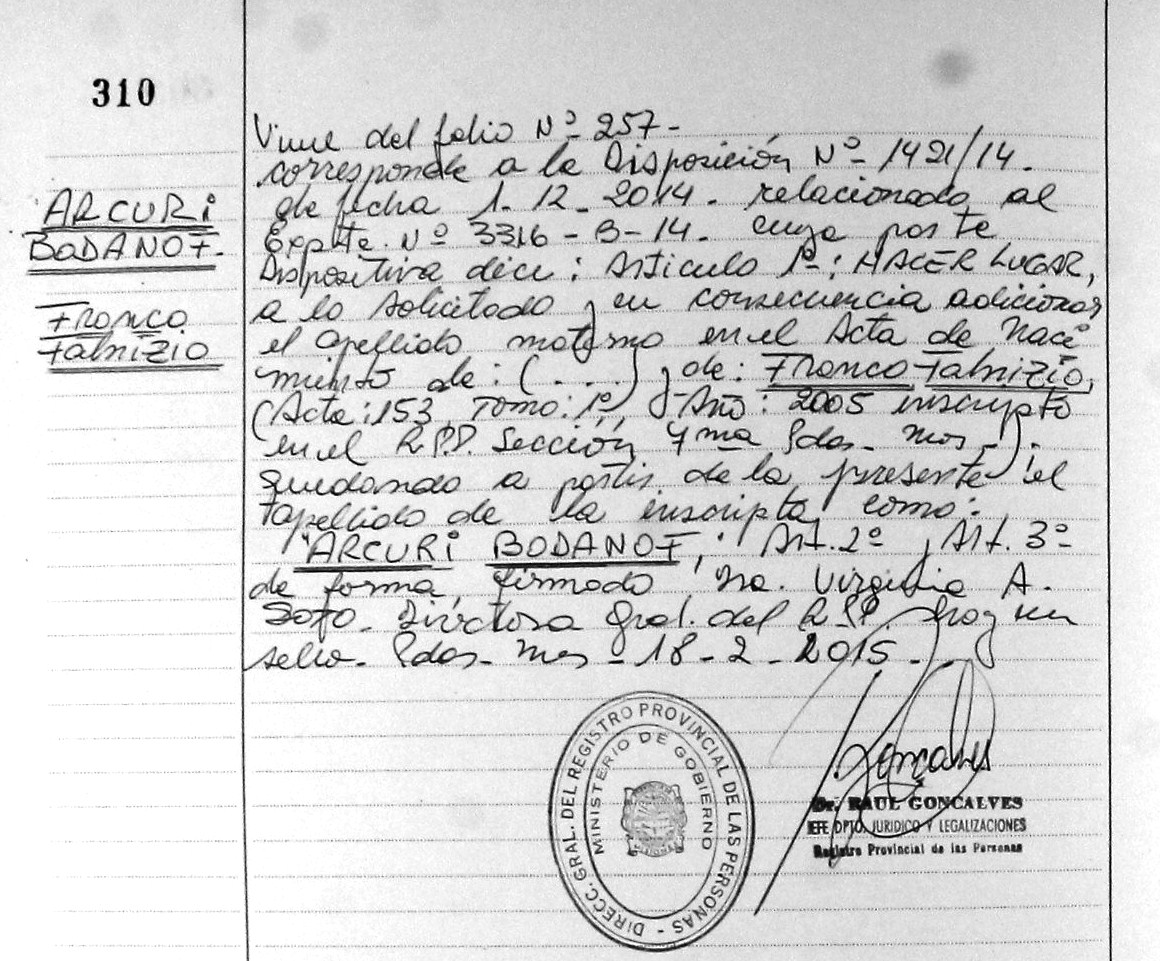 310
ARCURi
BODANOF.
Franco
Fabrizio
Viene del folio Nº 257-
corresponde a la Disposición Nº 1421/14.
de fecha 1. 12 - 2014. relacionado al
Expte. Nº 3316 - B - 14. cuya parte
Dispositiva dice: Articulo 1º: HACER LUGAR,
a lo solicitado y en consecuencia adicionar
el apellido materno en el Acta de Naci
miento de: (....) y de: Franco Fabrizio,
(Acta: 153, Tomo: 1º, Año: 2005 inscripto
en el R.P.P. Sección 7ma Pdas- Mnes-).
quedando a partir de la presente el
apellido de la inscripta como:
"ARCURi BODANOF," Art. 2º y Art. 3º
de forma, firmado Dra. Virginia A.
SOTO. Directora Gral. del RPP. Hay un
sello- Pdas- Mnes - 18 - 2 - 2015.
DIRECC. GRAL. DEL REGISTRO PROVINCIAL DE LAS PERSONAS -
MINISTERIO DE GOBIERNO
MISIONES
Goncalves
Dr. RAUL GONCALVES
JEFE DPTO. JURIDICO Y LEGALIZACIONES
Registro Provincial de las Personas